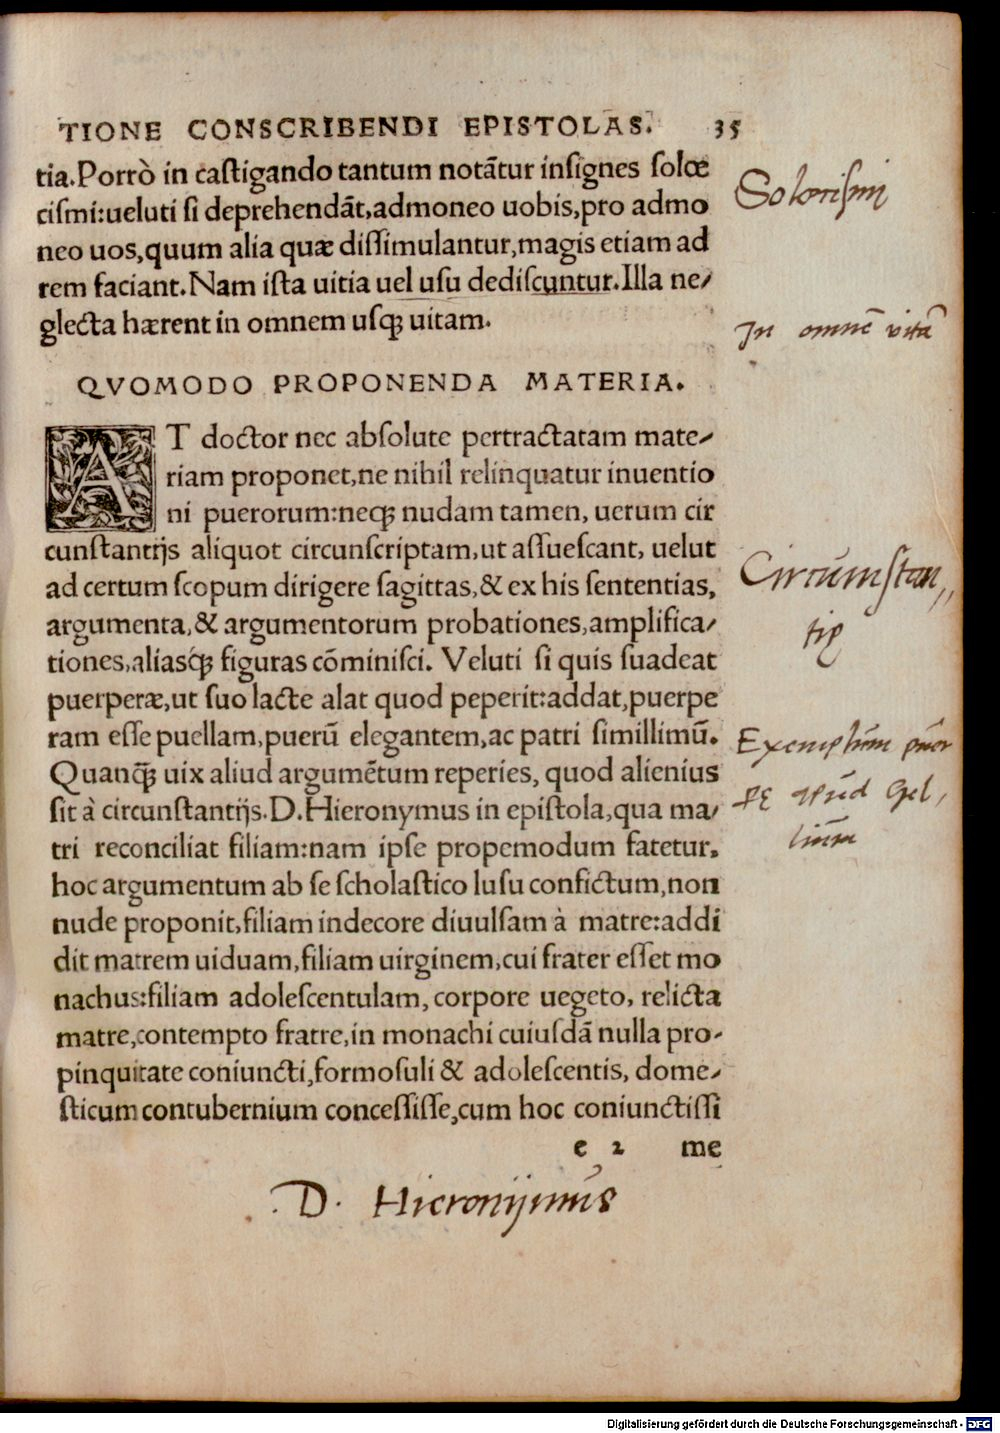 TIONE CONSCRIBENDI EPISTOLAS. 35
tia. Porrò in castigando tantum notãtur insignes solœ
cismi: ueluti si deprehendãt, admoneo uobis, pro admo
neo uos, quum alia quæ dissimulantur, magis etiam ad
rem faciant. Nam ista uitia uel usu dediscuntur. Illa ne/
glecta hærent in omnem usq; uitam.
Solœcismi
In omnẽ vitã
QVOMODO PROPONENDA MATERIA.
AT doctor nec absolute pertractatam mate/
riam proponet, ne nihil relinquatur inuentio
ni puerorum: neq; nudam tamen, uerum cir
cunstantijs aliquot circunscriptam, ut assuescant, uelut
ad certum scopum dirigere sagittas, & ex his sententias,
argumenta, & argumentorum probationes, amplifica/
tiones, aliasq; figuras cõminisci. Veluti si quis suadeat
puerperæ, ut suo lacte alat quod peperit: addat, puerpe
ram esse puellam, puerũ elegantem, ac patri simillimũ.
Quanq; uix aliud argumẽtum reperies, quod alienius
sit à circunstantijs. D. Hieronymus in epistola, qua ma/
tri reconciliat filiam: nam ipse propemodum fatetur,
hoc argumentum ab se scholastico lusu confictum, non
nude proponit, filiam indecore diuulsam à matre: addi
dit matrem uiduam, filiam uirginem, cui frater esset mo
nachus: filiam adolescentulam, corpore uegeto, relicta
matre, contempto fratre, in monachi cuiusdã nulla pro/
pinquitate coniuncti, formosuli & adolescentis, dome/
sticum contubernium concessisse, cum hoc coniunctissi
e 2 me
Circumstan,,
tię
Exemplum puer
pę apud Gel,
lium
D. Hieronijmus
Digitalisierung gefördert durch die Deutsche Forschungsgemeinschaft - DFG